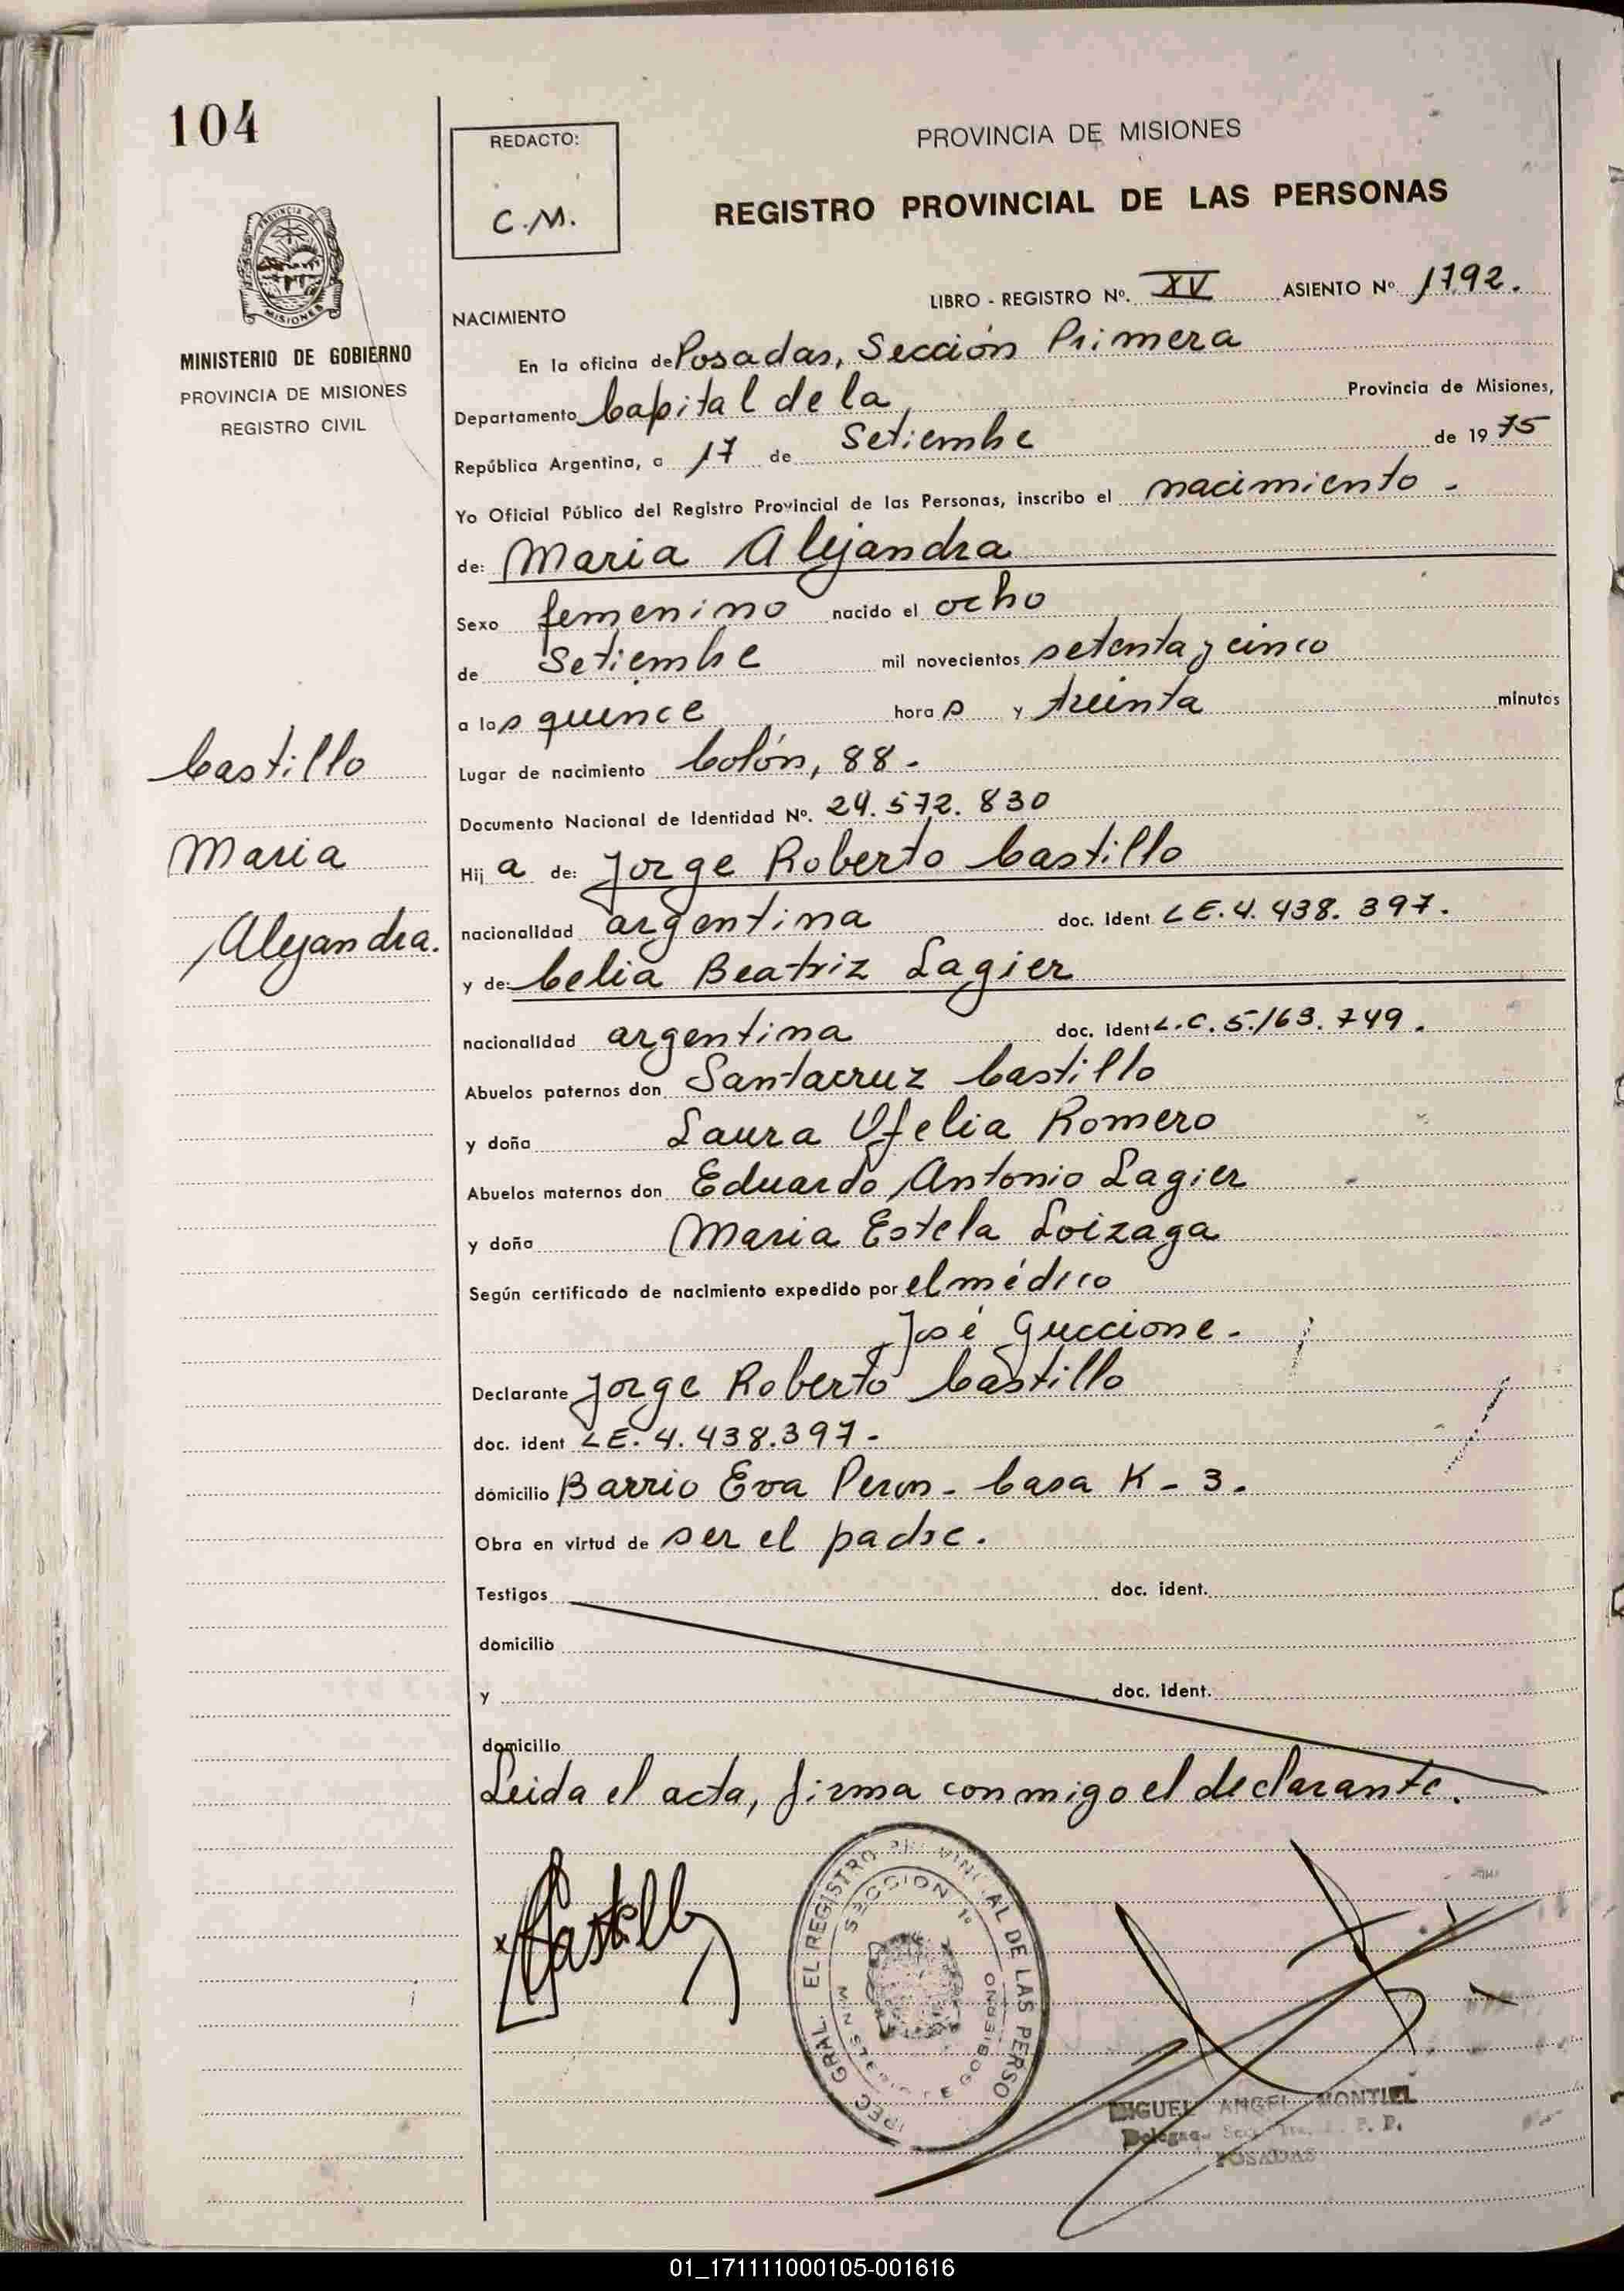 104
REDACTO:
C.M.
PROVINCIA DE MISIONES
REGISTRO PROVINCIAL DE LAS PERSONAS
MISIONES
MINISTERIO DE GOBIERNO
PROVINCIA DE MISIONES
REGISTRO CIVIL
LIBRO - REGISTRO Nº. XV ASIENTO Nº 1792.
NACIMIENTO
En la oficina de Posadas, Sección Primera
Departamento Capital de la Provincia de Misiones,
República Argentina, a 17 de Setiembre de 1975
Yo Oficial Público del Registro Provincial de las Personas, inscribo el nacimiento -
de: Maria Alejandra
Sexo femenino nacido el ocho
de Setiembre mil novecientos setenta y cinco
a las quince horas y treinta minutos
Lugar de nacimiento Colón, 88.-
Documento Nacional de Identidad Nº. 24.572.830
Hija de: Jorge Roberto Castillo
nacionalidad argentina doc. ident LE. 4.438.397.
y de: Celia Beatriz Lagier
nacionalidad argentina doc. ident L.C. 5.163.749.
Abuelos paternos don Santacruz Castillo
y doña Laura Ofelia Romero
Abuelos maternos don Eduardo Antonio Lagier
y doña Maria Estela Loizaga
Según certificado de nacimiento expedido por el médico
José Guccione.-
Declarante Jorge Roberto Castillo
doc. ident LE. 4.438.397.-
domicilio Barrio Eva Peron - Casa K - 3.
Obra en virtud de ser el padre.
Testigos doc. ident.
domicilio
y doc. ident.
domicilio
Leida el acta, firma conmigo el declarante.
Castillo
Maria
Alejandra.
x Castillo
DIREC. GRAL. EL REGISTRO PROVINCIAL DE LAS PERSO
SECCION 1º
MINISTERIO DE GOBIERNO
MIGUEL ANGEL MONTIEL
POSADAS
01_171111000105-001616